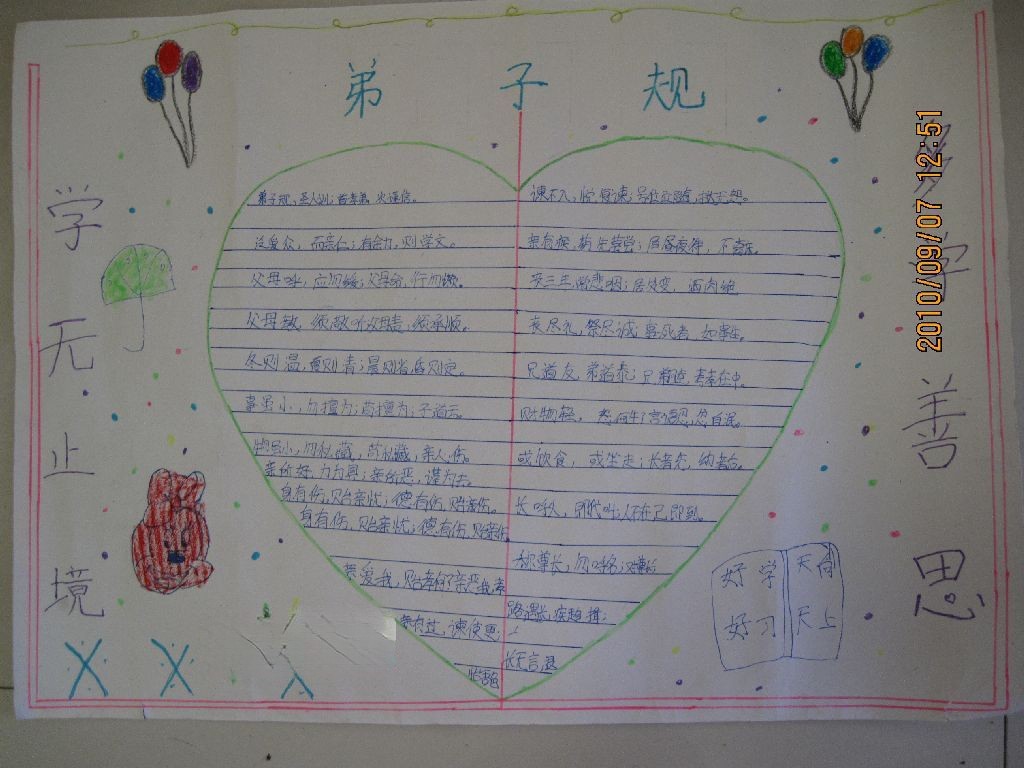 弟子规
学无止境
多学善思
弟子规，圣人训；首孝弟，次谨信。
泛爱众，而亲仁；有余力，则学文。
父母呼，应勿缓；父母命，行勿懒。
父母教，须敬听；父母责，须承顺。
冬则温，夏则清；晨则省，昏则定。
事虽小，勿擅为；苟擅为；子道亏。
物虽小，勿私藏，苟私藏，亲人伤。
亲所好，力为具；亲所恶，谨为去。
身有伤，贻亲忧；德有伤，贻亲伤。
身有伤，贻亲忧；德有伤，贻亲
爱我，亲
有过，谏使更；
谏不入，悦复谏；号泣
疾，药先尝；昼夜侍，不
三年，常悲咽；居处变，酒肉绝
丧尽礼，祭尽诚；事死者，如事生。
兄道友，弟道恭；兄弟睦，孝在中。
财物轻，怨何生；言语忍，忿自泯。
或饮食，或坐走；长者先，幼者后。
长呼人，即代叫；人不在，己即到。
称尊长，勿呼名；对尊长
路遇长，疾趋揖；
长无言，退
好学
好习
天天
天上
2010/09/07 12:51